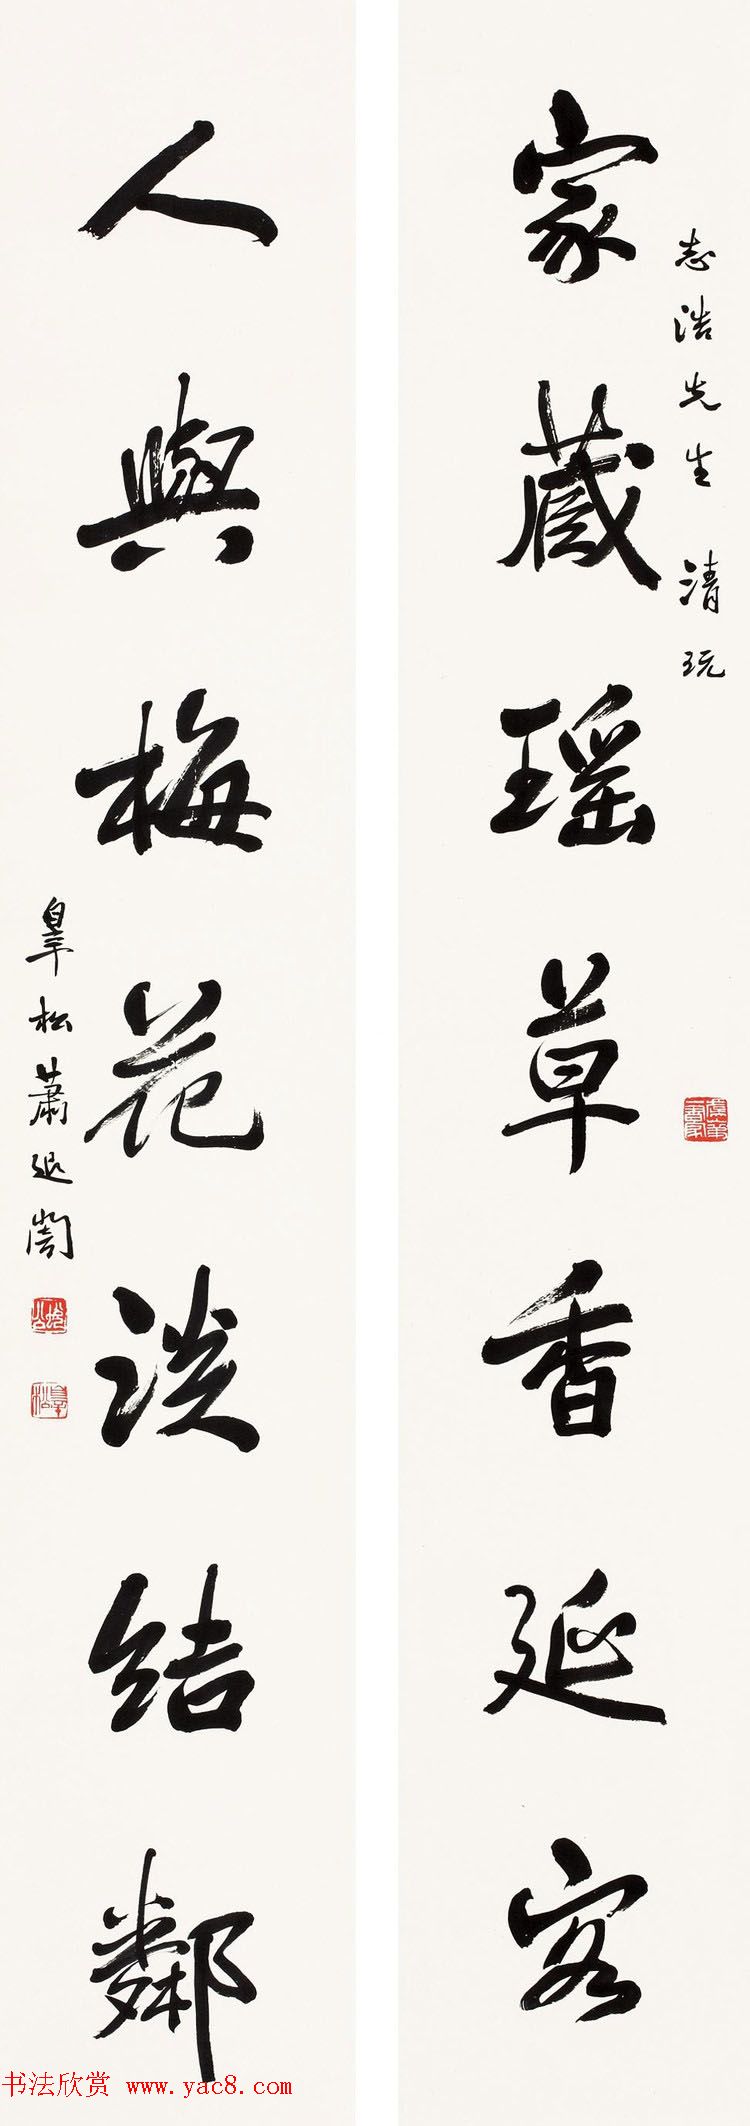 志浩先生 清玩
家藏瑶草香延客
人與梅花淡結鄰
皋松蕭退闇
书法欣赏 www.yac8.com